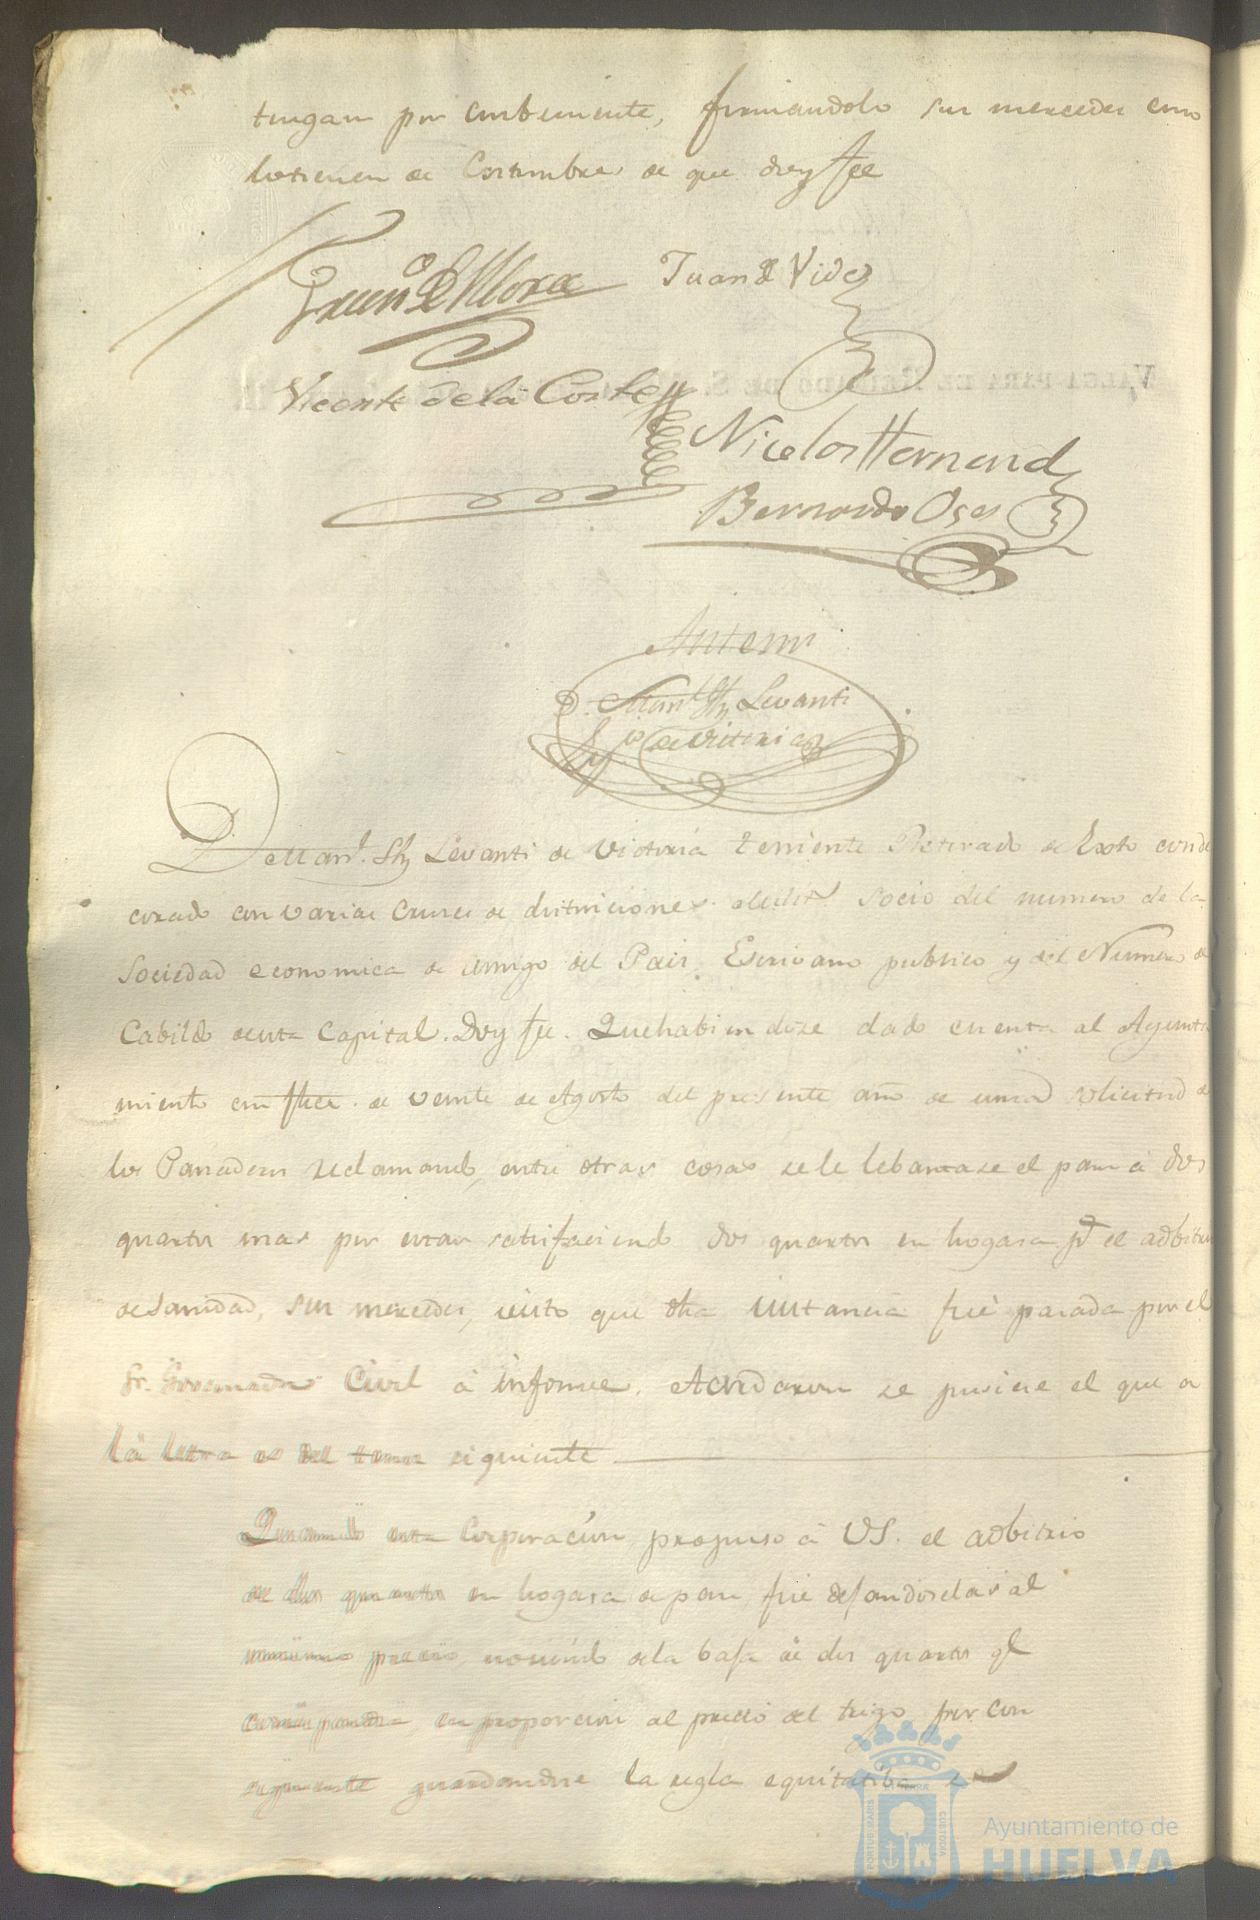 tengan por combeniente, firmandolo sus mercedes como
lo tienen de Costumbre de que doy fee
Franco. de Mora Juan de Vides
Vicente de la Corte
Nicolas Hernand
Bernardo Oses
Antemi
D. Manl. Sz Levanti
de Vitoria
D Manl. Sz Levanti de Victoria teniente Retirado de Exto conde
corado con varias Cruces de distinciones socio del numero de la
Sociedad economica de amigo del Pais, Escrivano publico y del Numero de
Cabildo de esta Capital. Doy fee. Que habiendose dado cuenta al Ayunta
miento en de veinte de Agosto del presente año de una solicitud de
los Panaderos reclamando, entre otras cosas se le lebantase el pan à dos
quartos mas por estar satisfaciendo dos quartos en hogasa pr. el adbitrio
de Sanidad, sus mercedes, visto que dha instancia fué pasada por el
Sr. Governador Civil à informe, Acordaron se pusiese el que a
la letra es del tenor siguiente
Quando esta Corporacion propuso à VS. el adbitrio
de dos quartos en hogasa de pan, fué dejandoselas al
mismo precio, usando de la baja de dos quartos qe
correspondia, en proporcion al precio del trigo, por con
siguiente guardandose la regla equitatiba
VALGA PARA EL REINADO DE S. M.
PORTUS MARIS ET TERRAE CUSTODIA
Ayuntamiento de
HUELVA